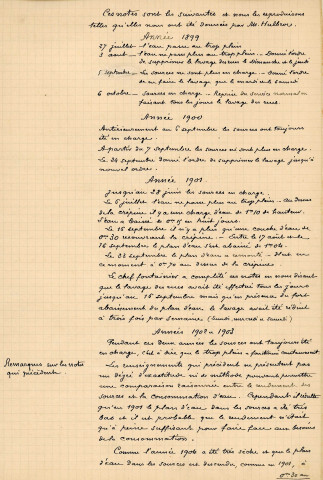 Ces notes sont les suivantes et nous les reproduisons
telles qu'elles nous ont été données par Mr
Année 1899
27 juillet l'eau passe au trop plein
3 aout l'eau ne passe plus au trop plein — Donné l'ordre
de supprimer le lavage des rues le dimanche et le jeudi
5 septembre Les sources ne sont plus en charge — Donné l'ordre
de ne faire le lavage que le mardi et samedi
6 octobre sources en charge — Reprise du service normal en
faisant tous les jours le lavage des rues
Année 1900
Antérieurement au 6 septembre les sources ont toujours
été en charge.
A partir du 7 septembre les sources ne sont plus en charge.
Le 24 septembre donné l'ordre de supprimer le lavage jusqu'à
nouvel ordre.
Année 1901
Jusqu'au 28 juin les sources en charge.
Le 6 juillet l'eau ne passe plus au trop plein. Au dessus
de la crépine il y a une charge d'eau de 1m10 de hauteur.
L'eau a baissé de 0m15 en huit jours.
Le 16 septembre il n'y a plus qu'une couche d'eau de
0m30 recouvrant la crépine. — Entre le 17 août et le
16 septembre le plan d'eau s'est abaissé de
Le 28 septembre le plan d'eau a remonté — Il est en
ce moment à 0m70 au dessus de la crépine
Le chef fontainier a complété ces notes en nous disant
que le lavage des rues avait été effectué tous les jours
jusqu'au 16 septembre mais qu'en présence du fort
abaissement du plan d'eau le lavage avait été réduit
à trois fois par semaine (lundi mercredi et samedi)
Années 1902 et 1903
Pendant ces deux années les sources ont toujours été
en charge, c'est à dire que le trop plein a fonctionné continuellement
Remarques sur les notes
qui précèdent
Les renseignements qui précèdent ne présentent pas
un degré d'exactitude ni de méthode pouvant permettre
une comparaison raisonnée entre le rendement des
sources et la consommation d'eau. Cependant il résulte
qu'en 1901 le plan d'eau dans les sources a été très
bas et il est probable que le rendement n'était
qu'à peine suffisant pour faire face aux besoins
de la consommation.
Comme l'année 1904 a été très sèche et que le plan
d'eau dans les sources est descendu, comme en 1901, à
0m30 au